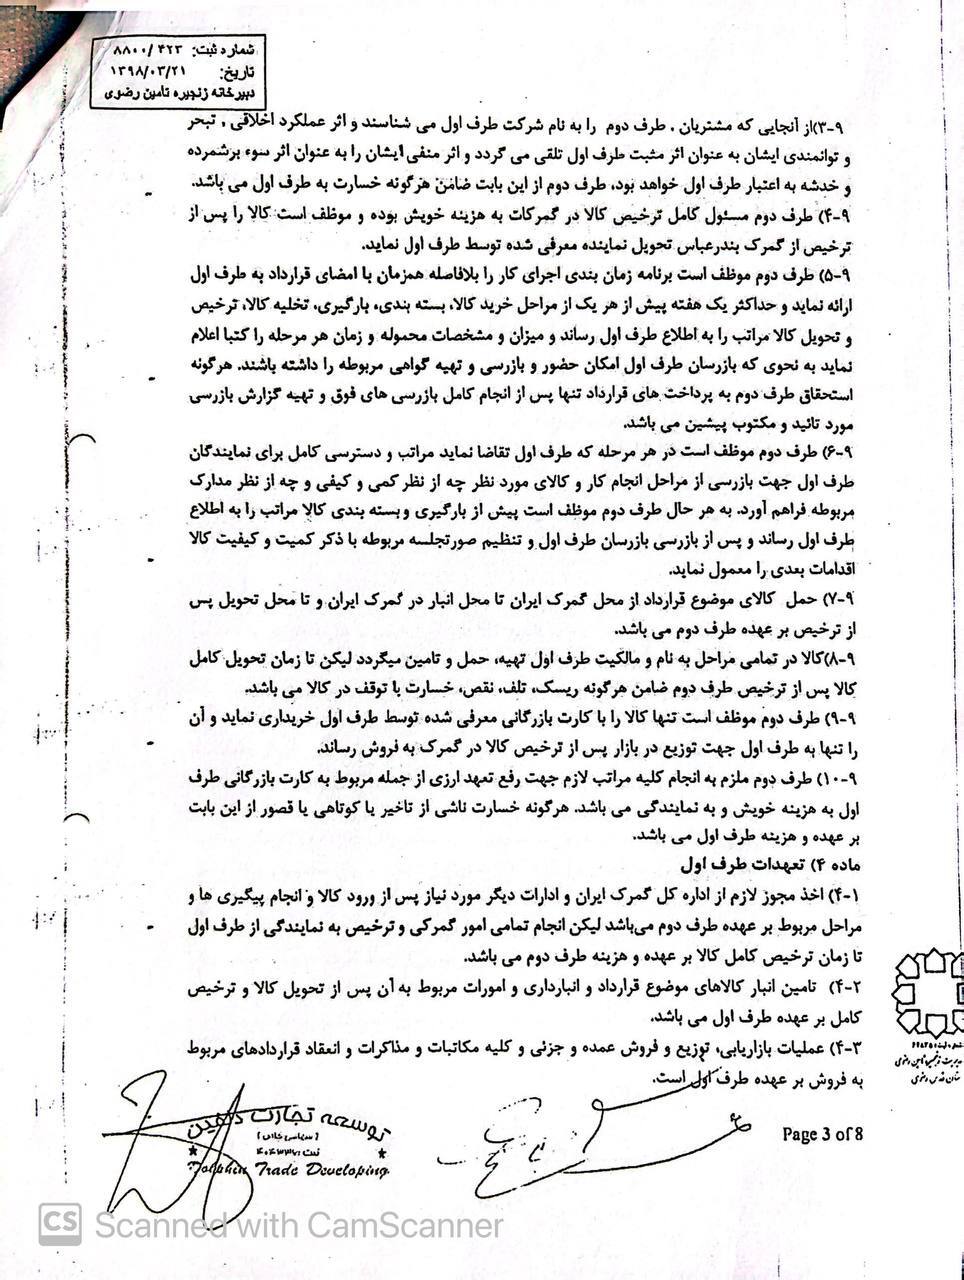 شماره ثبت: ۸۸۰۰/۴۲۳
تاریخ: ۱۳۹۸/۰۳/۲۱
دبیرخانه زنجیره تامین رضوی
۳-۹)از آنجایی که مشتریان ، طرف دوم را به نام شرکت طرف اول می شناسند و اثر عملکرد اخلاقی ، تبحر
و توانمندی ایشان به عنوان اثر مثبت طرف اول تلقی می گردد و اثر منفی ایشان را به عنوان اثر سوء برشمرده
و خدشه به اعتبار طرف اول خواهد بود، طرف دوم از این بابت ضامن هرگونه خسارت به طرف اول می باشد.
۴-۹) طرف دوم مسئول کامل ترخیص کالا در گمرکات به هزینه خویش بوده و موظف است کالا را پس از
ترخیص از گمرک بندرعباس تحویل نماینده معرفی شده توسط طرف اول نماید.
۵-۹) طرف دوم موظف است برنامه زمان بندی اجرای کار را بلافاصله همزمان با امضای قرارداد به طرف اول
ارائه نماید و حداکثر یک هفته پیش از هر یک از مراحل خرید کالا، بسته بندی، بارگیری، تخلیه کالا، ترخیص
و تحویل کالا مراتب را به اطلاع طرف اول رساند و میزان و مشخصات محموله و زمان هر مرحله را کتبا اعلام
نماید به نحوی که بازرسان طرف اول امکان حضور و بازرسی و تهیه گواهی مربوطه را داشته باشند. هرگونه
استحقاق طرف دوم به پرداخت های قرارداد تنها پس از انجام کامل بازرسی های فوق و تهیه گزارش بازرسی
مورد تائید و مکتوب پیشین می باشد.
۶-۹) طرف دوم موظف است در هر مرحله که طرف اول تقاضا نماید مراتب و دسترسی کامل برای نمایندگان
طرف اول جهت بازرسی از مراحل انجام کار و کالای مورد نظر چه از نظر کمی و کیفی و چه از نظر مدارک
مربوطه فراهم آورد. به هر حال طرف دوم موظف است پیش از بارگیری و بسته بندی کالا مراتب را به اطلاع
طرف اول رساند و پس از بازرسی بازرسان طرف اول و تنظیم صورتجلسه مربوطه با ذکر کمیت و کیفیت کالا
اقدامات بعدی را معمول نماید.
۷-۹) حمل کالای موضوع قرارداد از محل گمرک ایران تا محل انبار در گمرک ایران و تا محل تحویل پس
از ترخیص بر عهده طرف دوم می باشد.
۸-۹)کالا در تمامی مراحل به نام و مالکیت طرف اول تهیه، حمل و تامین میگردد لیکن تا زمان تحویل کامل
کالا پس از ترخیص طرف دوم ضامن هرگونه ریسک، تلف، نقص، خسارت یا توقف در کالا می باشد.
۹-۹) طرف دوم موظف است تنها کالا را با کارت بازرگانی معرفی شده توسط طرف اول خریداری نماید و آن
را تنها به طرف اول جهت توزیع در بازار پس از ترخیص کالا در گمرک به فروش رساند.
۱۰-۹) طرف دوم ملزم به انجام کلیه مراتب لازم جهت رفع تعهد ارزی از جمله مربوط به کارت بازرگانی طرف
اول به هزینه خویش و به نمایندگی می باشد. هرگونه خسارت ناشی از تاخیر یا کوتاهی یا قصور از این بابت
بر عهده و هزینه طرف اول می باشد.
ماده ۴) تعهدات طرف اول
۴-۱) اخذ مجوز لازم از اداره کل گمرک ایران و ادارات دیگر مورد نیاز پس از ورود کالا و انجام پیگیری ها و
مراحل مربوط بر عهده طرف دوم می‌باشد لیکن انجام تمامی امور گمرکی و ترخیص به نمایندگی از طرف اول
تا زمان ترخیص کامل کالا بر عهده و هزینه طرف دوم می باشد.
۴-۲) تامین انبار کالاهای موضوع قرارداد و انبارداری و امورات مربوط به آن پس از تحویل کالا و ترخیص
کامل بر عهده طرف اول می باشد.
۴-۳) عملیات بازاریابی، توزیع و فروش عمده و جزئی و کلیه مکاتبات و مذاکرات و انعقاد قراردادهای مربوط
به فروش بر عهده طرف اول است.
Page 3 of 8
توسعه تجارت دلفین
(سهامی خاص)
Dolphin Trade Developing
CS Scanned with CamScanner